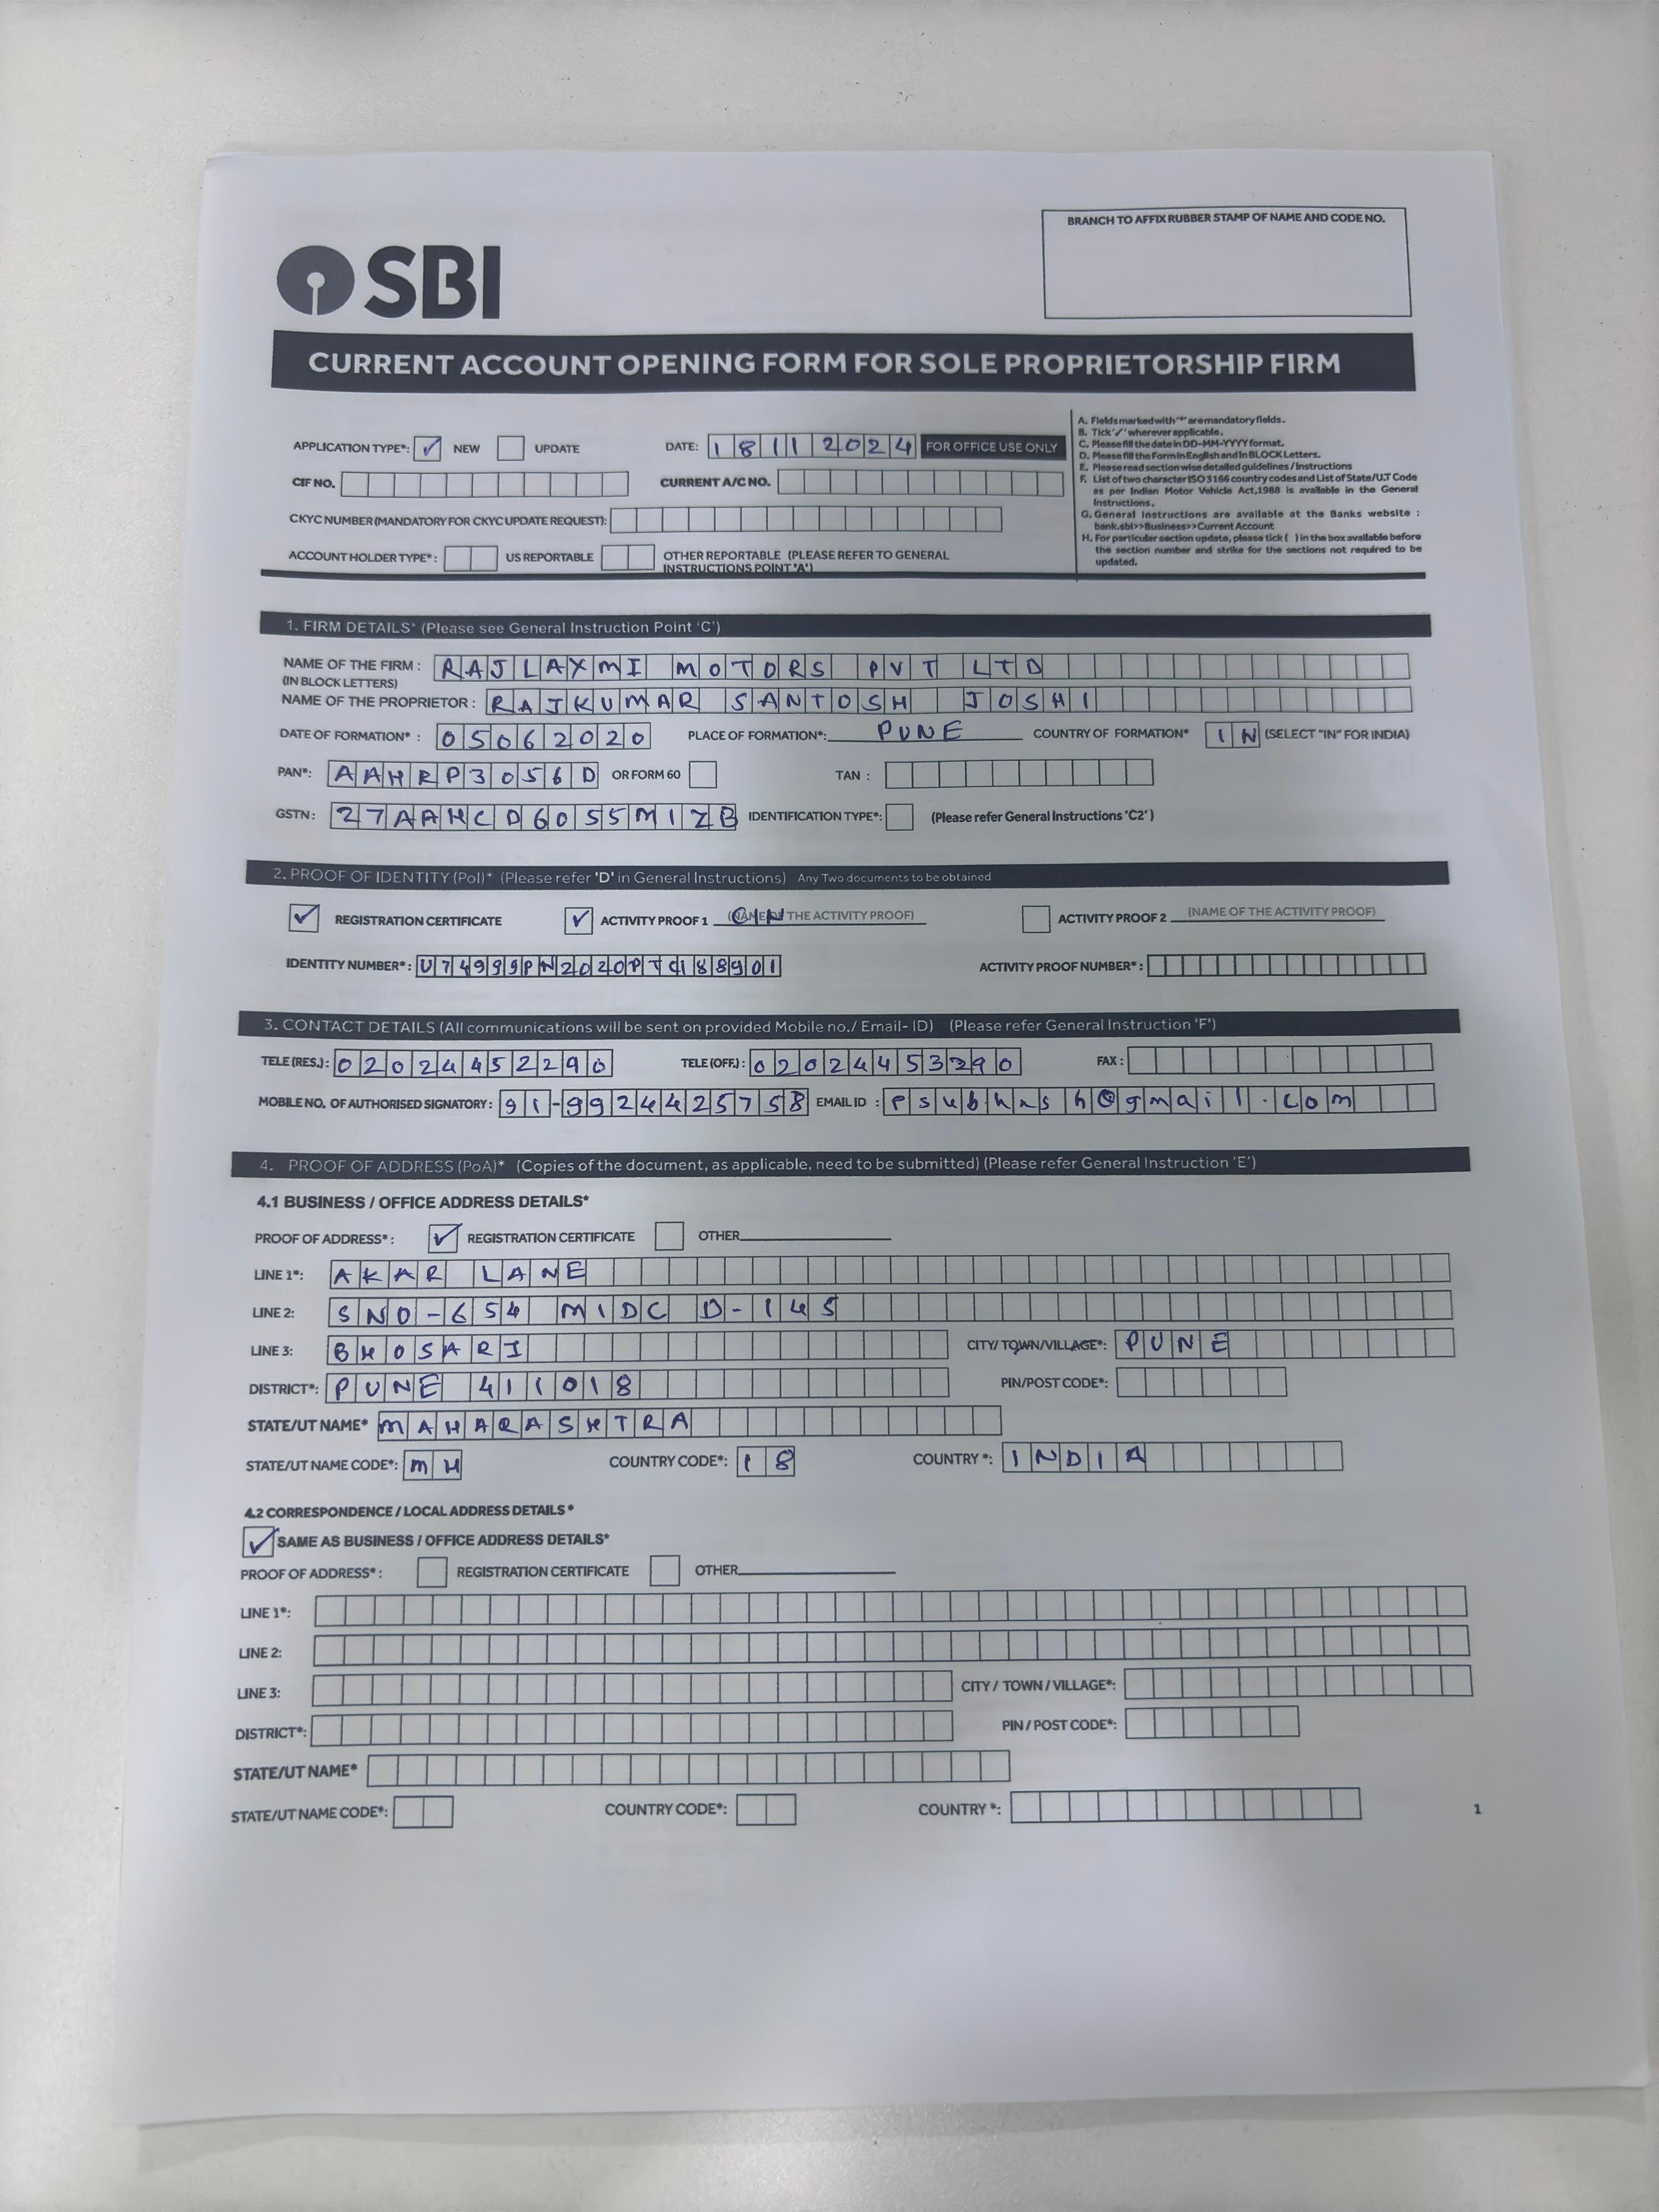 BRANCH TO AFFIX RUBBER STAMP OF NAME AND CODE NO.
SBI
CURRENT ACCOUNT OPENING FORM FOR SOLE PROPRIETORSHIP FIRM
APPLICATION TYPE*: ✓ NEW UPDATE DATE: 18112024 FOR OFFICE USE ONLY
CIF NO. CURRENT A/C NO.
CKYC NUMBER (MANDATORY FOR CKYC UPDATE REQUEST):
ACCOUNT HOLDER TYPE*: US REPORTABLE OTHER REPORTABLE (PLEASE REFER TO GENERAL
INSTRUCTIONS POINT 'A')
A. Fields marked with '*' are mandatory fields.
B. Tick '✓' wherever applicable.
C. Please fill the date in DD-MM-YYYY format.
D. Please fill the Form in English and in BLOCK Letters.
E. Please read section wise detailed guidelines / Instructions
F. List of two character ISO 3166 country codes and List of State/U.T Code
as per Indian Motor Vehicle Act,1988 is available in the General
Instructions.
G. General Instructions are available at the Banks website :
bank.sbi>>Business>>Current Account
H. For particular section update, please tick ( ) in the box available before
the section number and strike for the sections not required to be
updated.
1. FIRM DETAILS* (Please see General Instruction Point 'C')
NAME OF THE FIRM : RAJLAXMI MOTORS PVT LTD
(IN BLOCK LETTERS)
NAME OF THE PROPRIETOR : RAJKUMAR SANTOSH JOSHI
DATE OF FORMATION* : 05062020 PLACE OF FORMATION*: PUNE COUNTRY OF FORMATION* IN (SELECT "IN" FOR INDIA)
PAN*: AAHRP3056D OR FORM 60 TAN :
GSTN: 27AAHCD6055M1ZB IDENTIFICATION TYPE*: (Please refer General Instructions 'C2')
2. PROOF OF IDENTITY (PoI)* (Please refer 'D' in General Instructions) Any Two documents to be obtained
✓ REGISTRATION CERTIFICATE ✓ ACTIVITY PROOF 1 CIN (NAME OF THE ACTIVITY PROOF) ACTIVITY PROOF 2 (NAME OF THE ACTIVITY PROOF)
IDENTITY NUMBER*: U74999PN2020PTC188901 ACTIVITY PROOF NUMBER*:
3. CONTACT DETAILS (All communications will be sent on provided Mobile no./ Email- ID) (Please refer General Instruction 'F')
TELE (RES.): 02024452290 TELE (OFF.): 02024453290 FAX :
MOBILE NO. OF AUTHORISED SIGNATORY: 91-9924425758 EMAIL ID : psubhnsh@gmail.com
4. PROOF OF ADDRESS (PoA)* (Copies of the document, as applicable, need to be submitted) (Please refer General Instruction 'E')
4.1 BUSINESS / OFFICE ADDRESS DETAILS*
PROOF OF ADDRESS*: ✓ REGISTRATION CERTIFICATE OTHER
LINE 1*: AKAR LANE
LINE 2: SNO-654 MIDC D-145
LINE 3: BHOSARI CITY/ TOWN/VILLAGE*: PUNE
DISTRICT*: PUNE 411018 PIN/POST CODE*:
STATE/UT NAME* MAHARASHTRA
STATE/UT NAME CODE*: MH COUNTRY CODE*: 18 COUNTRY *: INDIA
4.2 CORRESPONDENCE / LOCAL ADDRESS DETAILS *
✓ SAME AS BUSINESS / OFFICE ADDRESS DETAILS*
PROOF OF ADDRESS*: REGISTRATION CERTIFICATE OTHER
LINE 1*:
LINE 2:
LINE 3: CITY / TOWN / VILLAGE*:
DISTRICT*: PIN / POST CODE*:
STATE/UT NAME*
STATE/UT NAME CODE*: COUNTRY CODE*: COUNTRY *:
1